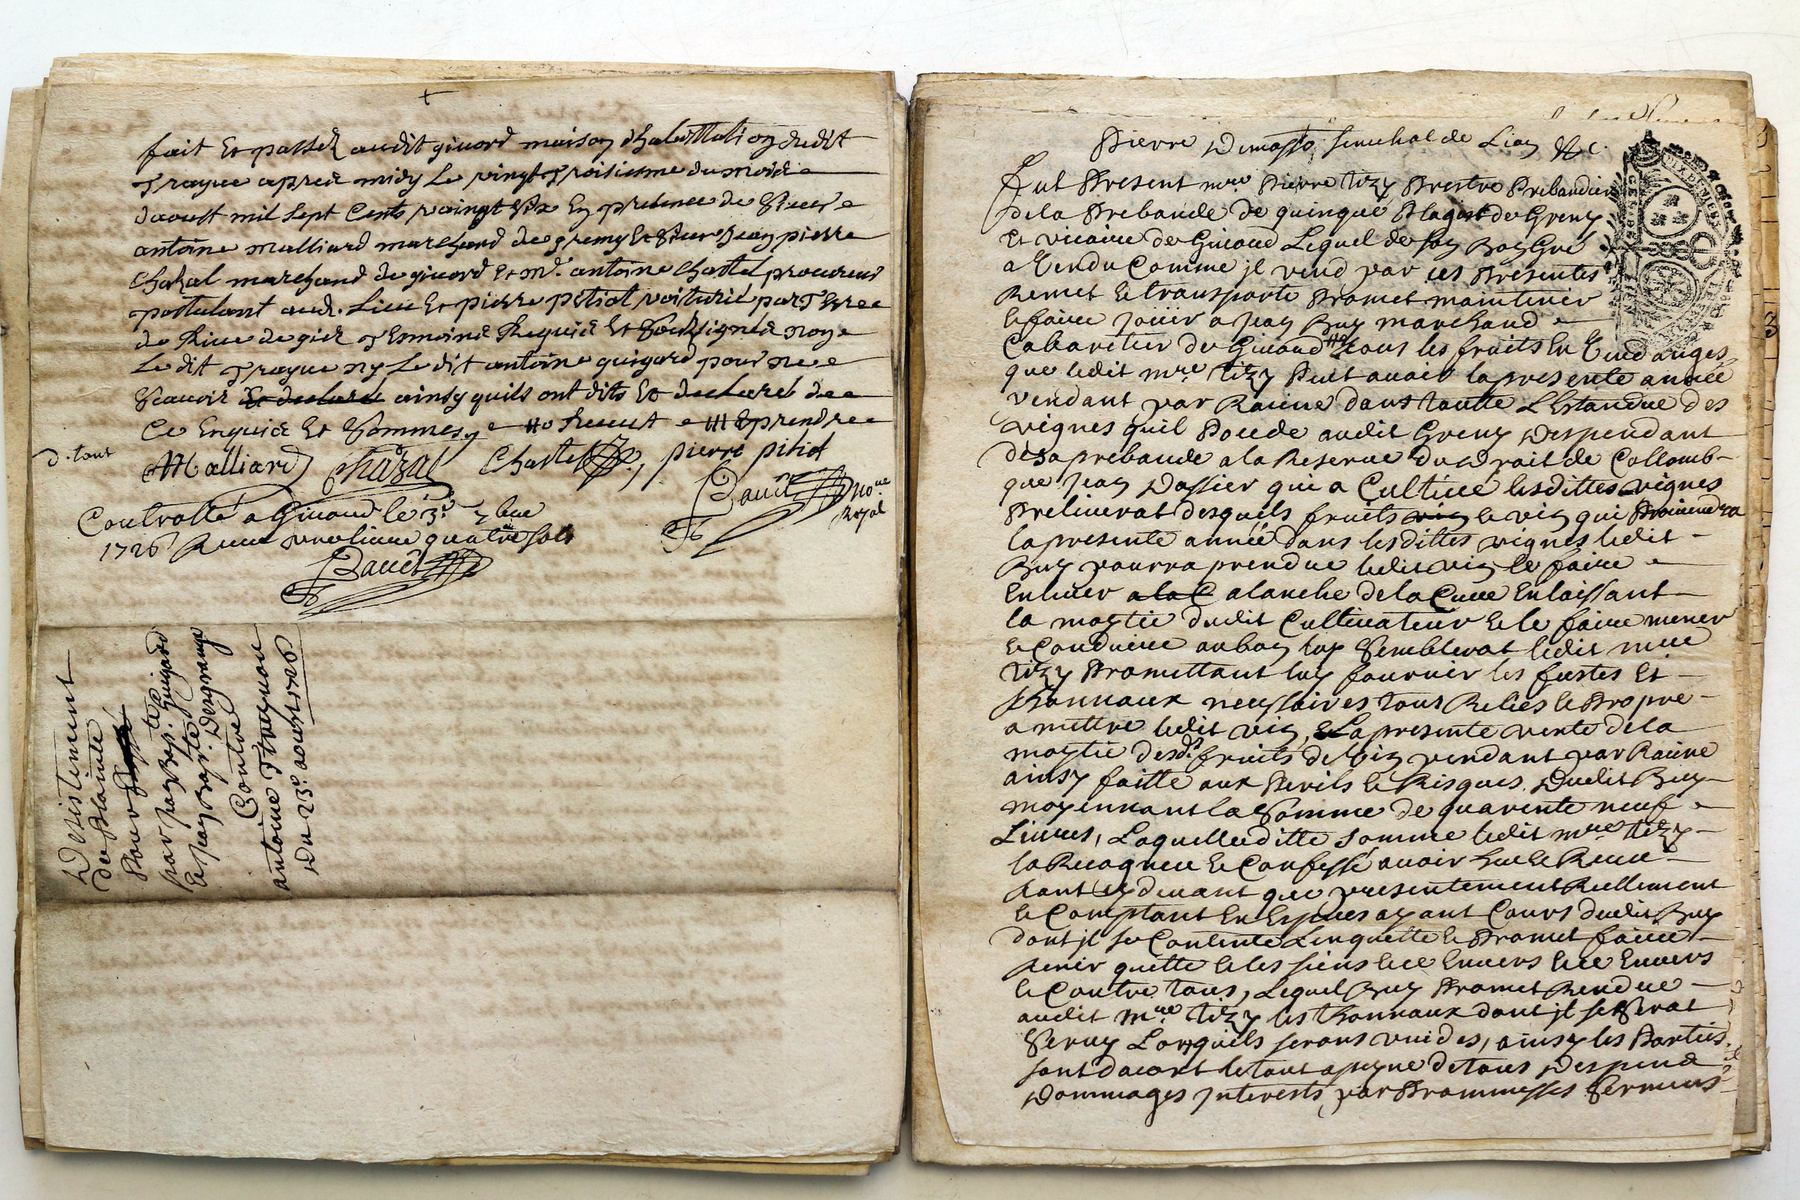 fait Et passé audit givord maison d'habittation dudit
Trayne apres midy Le vingt Troisiesme du mois
daoust mil sept Cents vaingt six En presence de Sieur
antoine malliard marchand de gremy Et Sieur Jean pierre
Chazal marchand de givord Et mr. antoine Chastel procureur
postulant aud. Lieu Et pierre pitiot voiturié par Terre
de Rive de gier Tesmoins Requis Et Soussignés non
Le dit Trayne ny Le dit antoine guigard pour ne
Scavoir Et declaré ainsy quils ont dits Et declarés de
Ce Enquis Et Sommés
d. tout
Malliard Chazal Chastel pierre pitiot
Baudt Nore Royal
Controllé a Givord le 3e 7bre
1726 Receu quatre sols
Baudt
Desistement
de Plainte
Pour
par jean Bap.te Guigard
et Jean Bap.te Desgrange
Contre
antoine
Du 23e aoust 1726
Pierre Dimasso senechal de Lion &c.
Fut Present mre Pierre Tizy Prestre Prebandier
de la Prebande de quinque Plagar de Greny
Et vicaire de Givord Lequel de son Bon Gré
a Vendu Comme jl vend par ces Presentes
Remet Et transporte Promet maintenir
Et faire Jouir a Jean Buy marchand
Cabaretier de Givord tous les fruits En Vendanges
que ledit mre Tizy Peut avoir la presente année
pendant par Racine dans toutte L'Estandue des
vignes quil Possede audit Greny Despendant
de sa prebande a la Reserve du Droit de Collomb
que Jean Dassier qui a Cultivé lesdittes vignes
Prelevera desquels fruits Et vin qui Proviendra
la presente année dans lesdittes vignes ledit
Buy pourra prendre ledit vin Et le faire
Enlever a la C a lanche de la Cuve En laissant
la moytié dudit Cultivateur Et le faire mener
Et Conduire ou bon luy Semblera ledit mre
Tizy Promettant luy fournir les futtes Et
Thonneaux necessaires tous Reliés Et Propre
a mettre ledit vin, La presente vente de la
moytié desd. fruits de Vin pendant par Racine
ainsy faitte aux Perils Et Risques Dudit Buy
moyennant la Somme de quarente neuf
Livres, Laquelle ditte somme ledit mre Tizy
la Recogneu Et Confessé avoir heu Et Receu
tant cy devant que presentement Reellement
Et Comptant En Especes ayant Cours dudit Buy
dont jl se Contente Len quitte Et Promet faire
tenir quitte Et les siens Envers Et Envers
Et Contre tous, Lequel Buy Promet Rendre
audit mre Tizy les Thonneaux dont jl se Serat
Servy Lorsquils serons vuides, ainsy les Parties
sont dacort Et tout a peyne de tous Despens
Dommages jnterests par Prommesses Serments